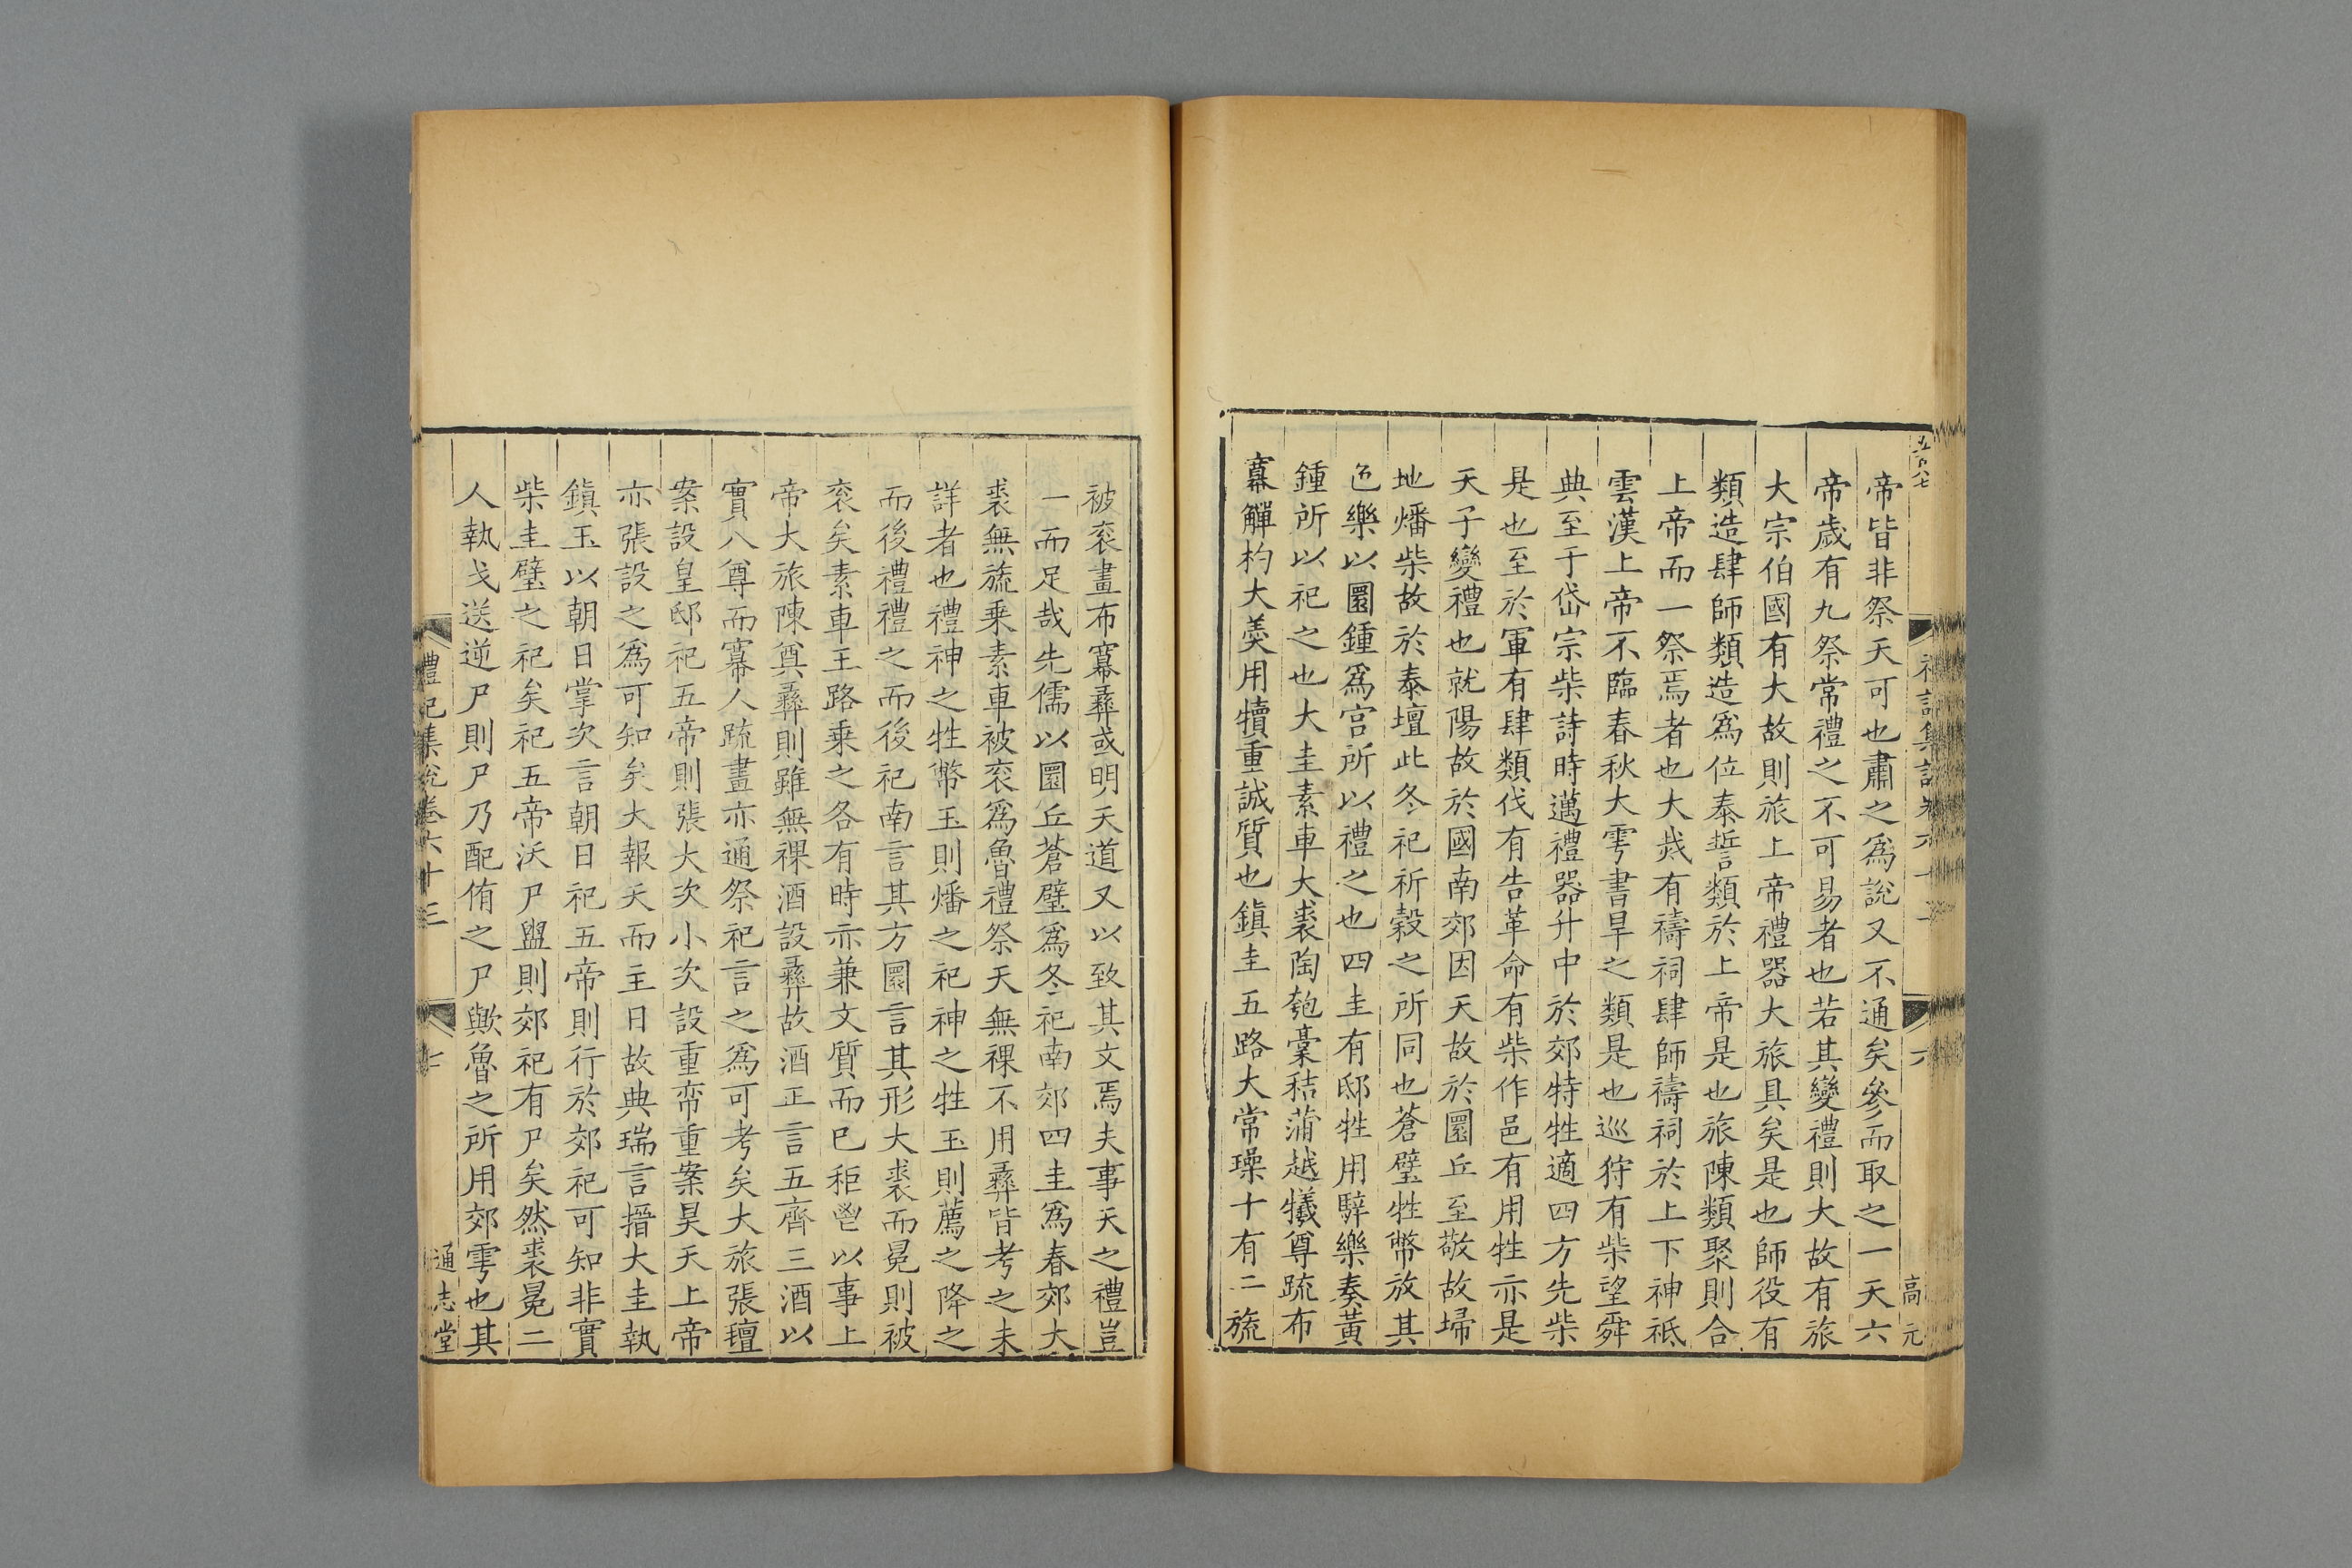 帝皆非祭天可也肅之爲說又不通矣參而取之一天六
帝歲有九祭常禮之不可易者也若其變禮則大故有旅
大宗伯國有大故則旅上帝禮器大旅具矣是也師役有
類造肆師類造爲位泰誓類於上帝是也旅陳類聚則合
上帝而一祭焉者也大烖有禱祠肆師禱祠於上下神祗
雲漢上帝不臨春秋大雩書旱之類是也巡狩有柴望舜
典至于岱宗柴詩時邁禮器升中於郊特牲適四方先柴
是也至於軍有肆類伐有告革命有柴作邑有用牲亦是
天子變禮也就陽故於國南郊因天故於圜丘至敬故埽
地燔柴故於泰壇此冬祀祈穀之所同也蒼璧牲幣放其
色樂以圜鍾爲宫所以禮之也四圭有邸牲用騂樂奏黃
鍾所以祀之也大圭素車大裘陶匏稾秸蒲越犧尊疏布
冪觶杓大羮用犢重誠質也鎮圭五路大常璪十有二旒
高元
被衮畫布冪彝或明天道又以致其文焉夫事天之禮豈
一而足哉先儒以圜丘蒼璧爲冬祀南郊四圭爲春郊大
裘無旒乗素車被衮爲魯禮祭天無祼不用彝皆考之未
詳者也禮神之牲幣玉則燔之祀神之牲玉則薦之降之
而後禮禮之而後祀南言其方圜言其形大裘而冕則被
衮矣素車王路乗之各有時亦兼文質而已秬鬯以事上
帝大旅陳奠彝則雖無祼酒設彝故酒正言五齊三酒以
實八尊而冪人疏畫亦通祭祀言之爲可考矣大旅張氊
案設皇邸祀五帝則張大次小次設重帟重案昊天上帝
亦張設之爲可知矣大報天而主日故典瑞言搢大圭執
鎮玉以朝日掌次言朝日祀五帝則行於郊祀可知非實
柴圭璧之祀矣祀五帝沃尸盥則郊祀有尸矣然裘冕二
人執戈送逆尸則尸乃配侑之尸歟魯之所用郊雩也其
禮記集說卷六十三
七
通志堂